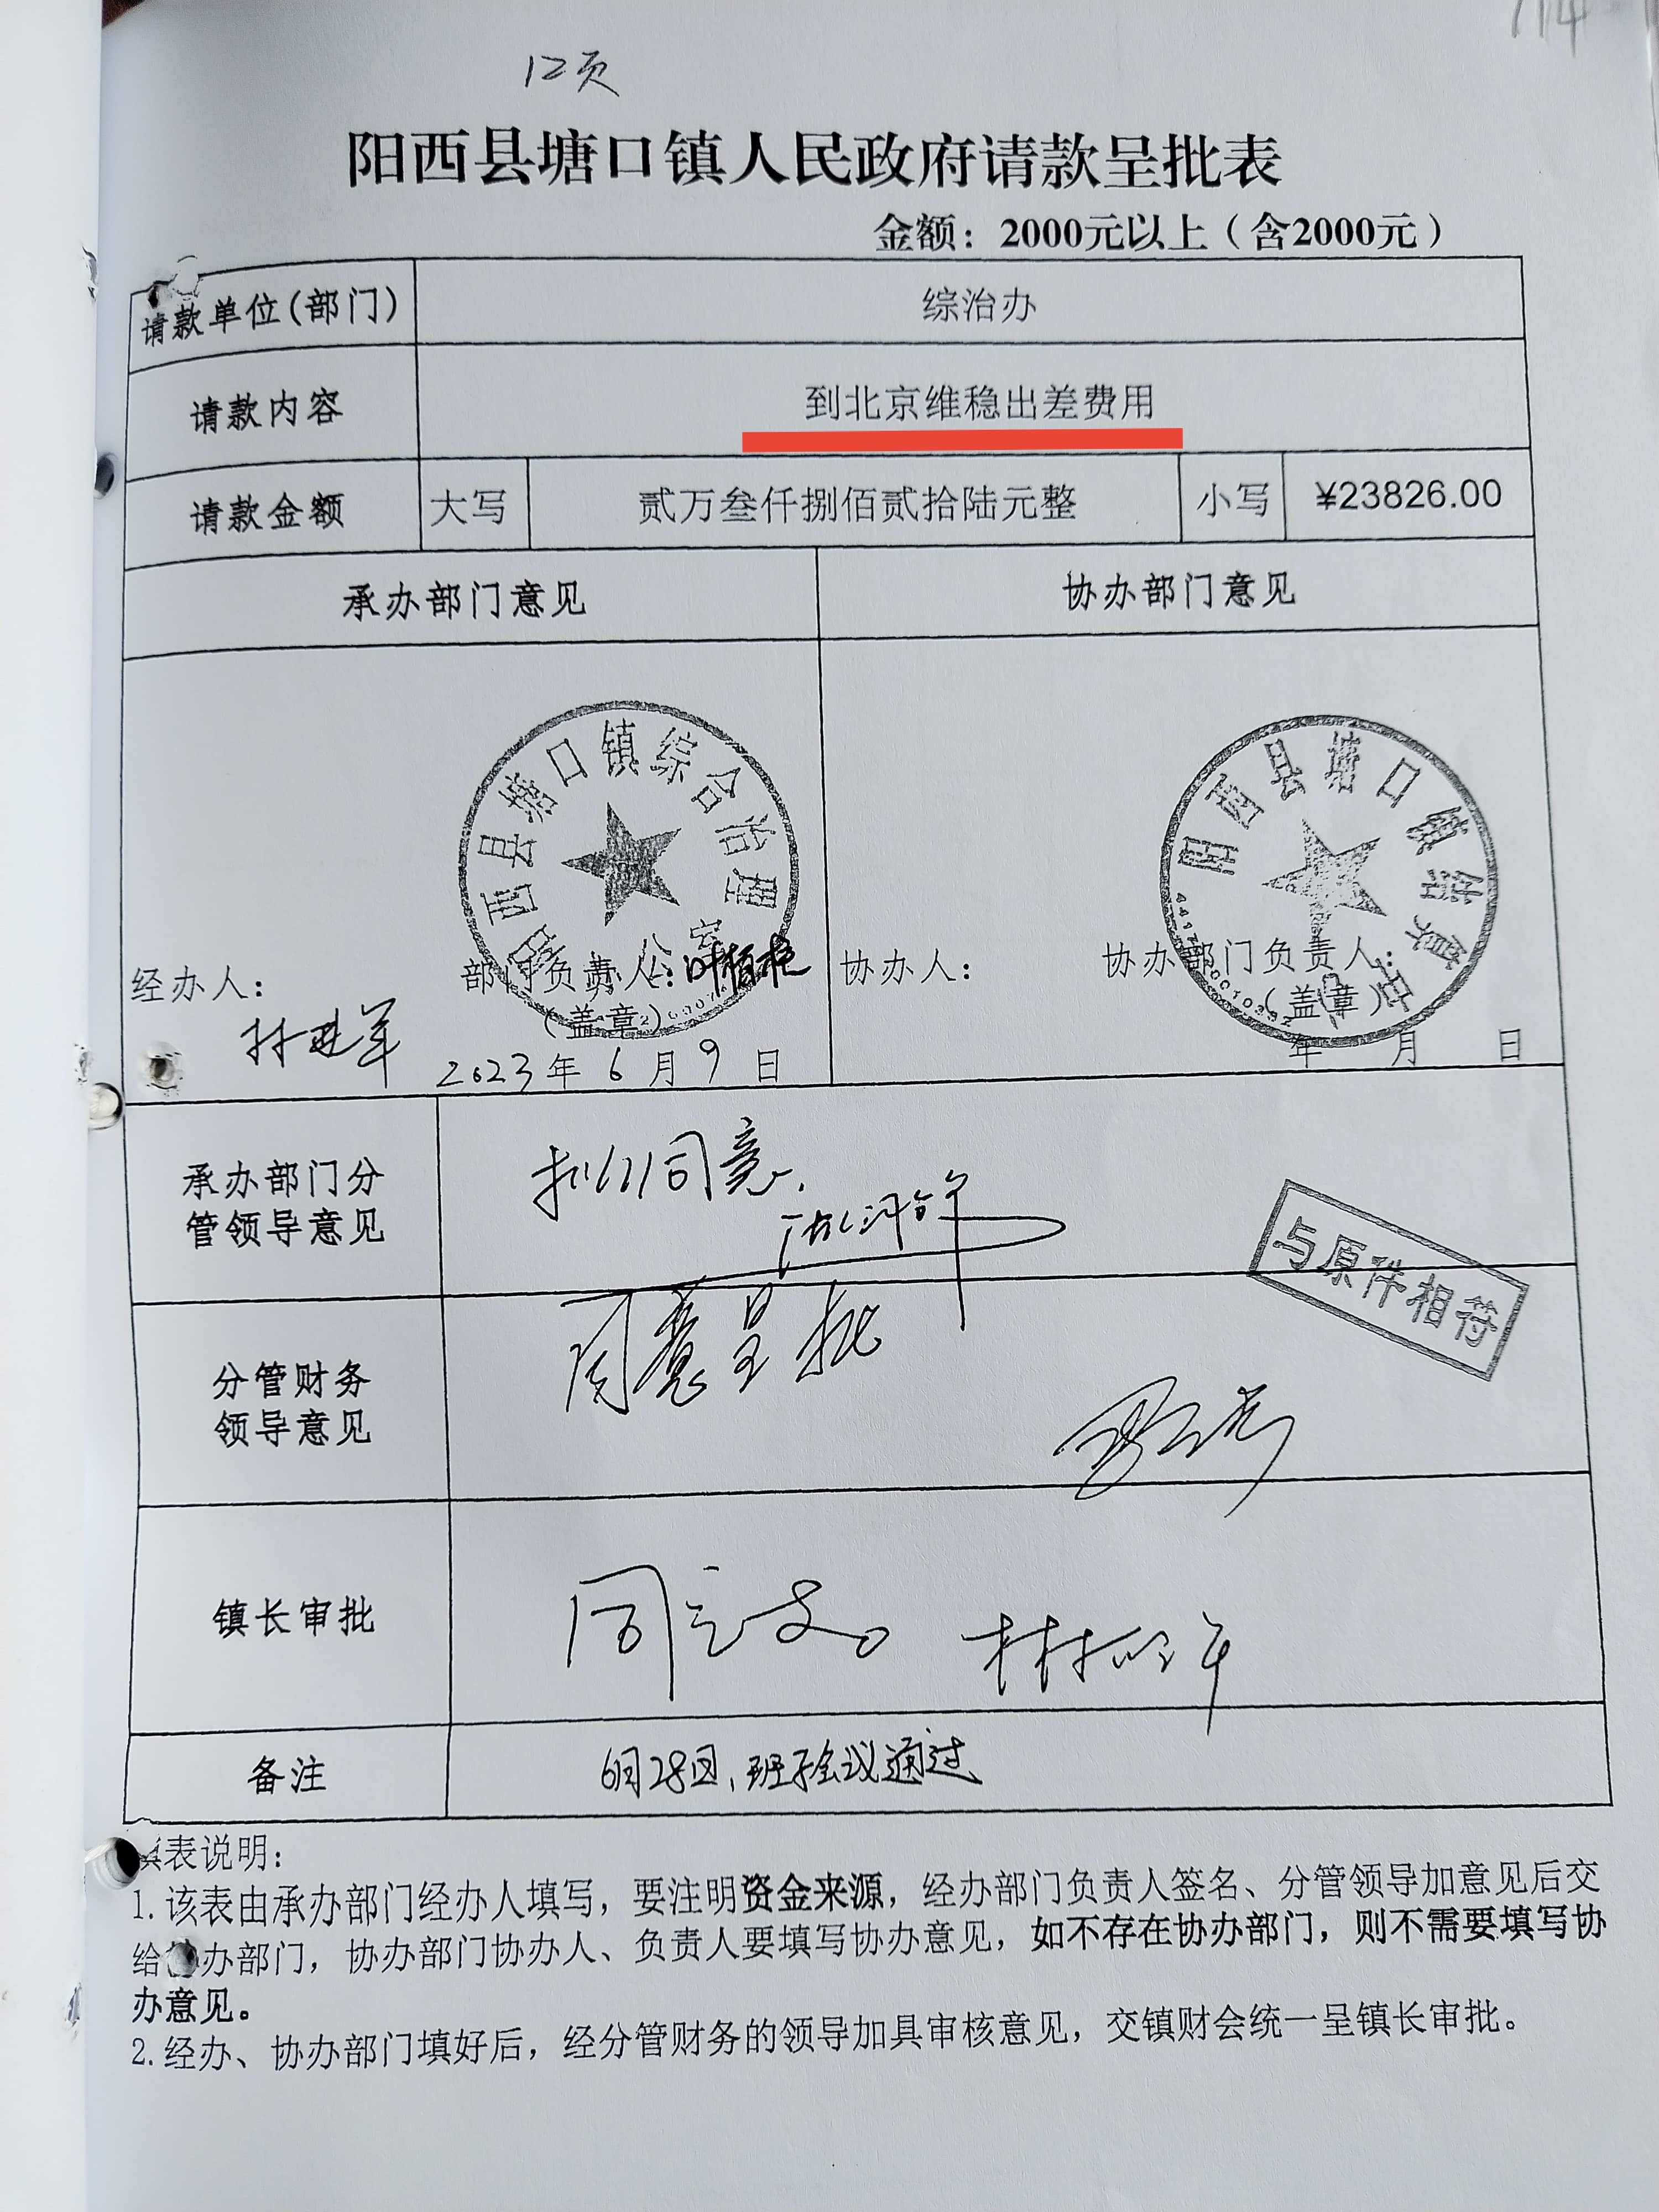 114
12页
阳西县塘口镇人民政府请款呈批表
金额：2000元以上（含2000元）
请款单位(部门) 综治办
请款内容 到北京维稳出差费用
请款金额 大写 贰万叁仟捌佰贰拾陆元整 小写 ¥23826.00
承办部门意见 协办部门意见
阳西县塘口镇综合治理办公室
阳西县塘口镇结算
经办人： 部门负责人： 协办人： 协办部门负责人：
（盖章） （盖章）
2023年6月9日 年 月 日
承办部门分
管领导意见
拟同意.
与原件相符
分管财务
领导意见
同意呈批
镇长审批
同意支。
备注 6月28日、班子会议通过
填表说明：
1.该表由承办部门经办人填写，要注明资金来源，经办部门负责人签名、分管领导加意见后交
给协办部门，协办部门协办人、负责人要填写协办意见，如不存在协办部门，则不需要填写协
办意见。
2.经办、协办部门填好后，经分管财务的领导加具审核意见，交镇财会统一呈镇长审批。